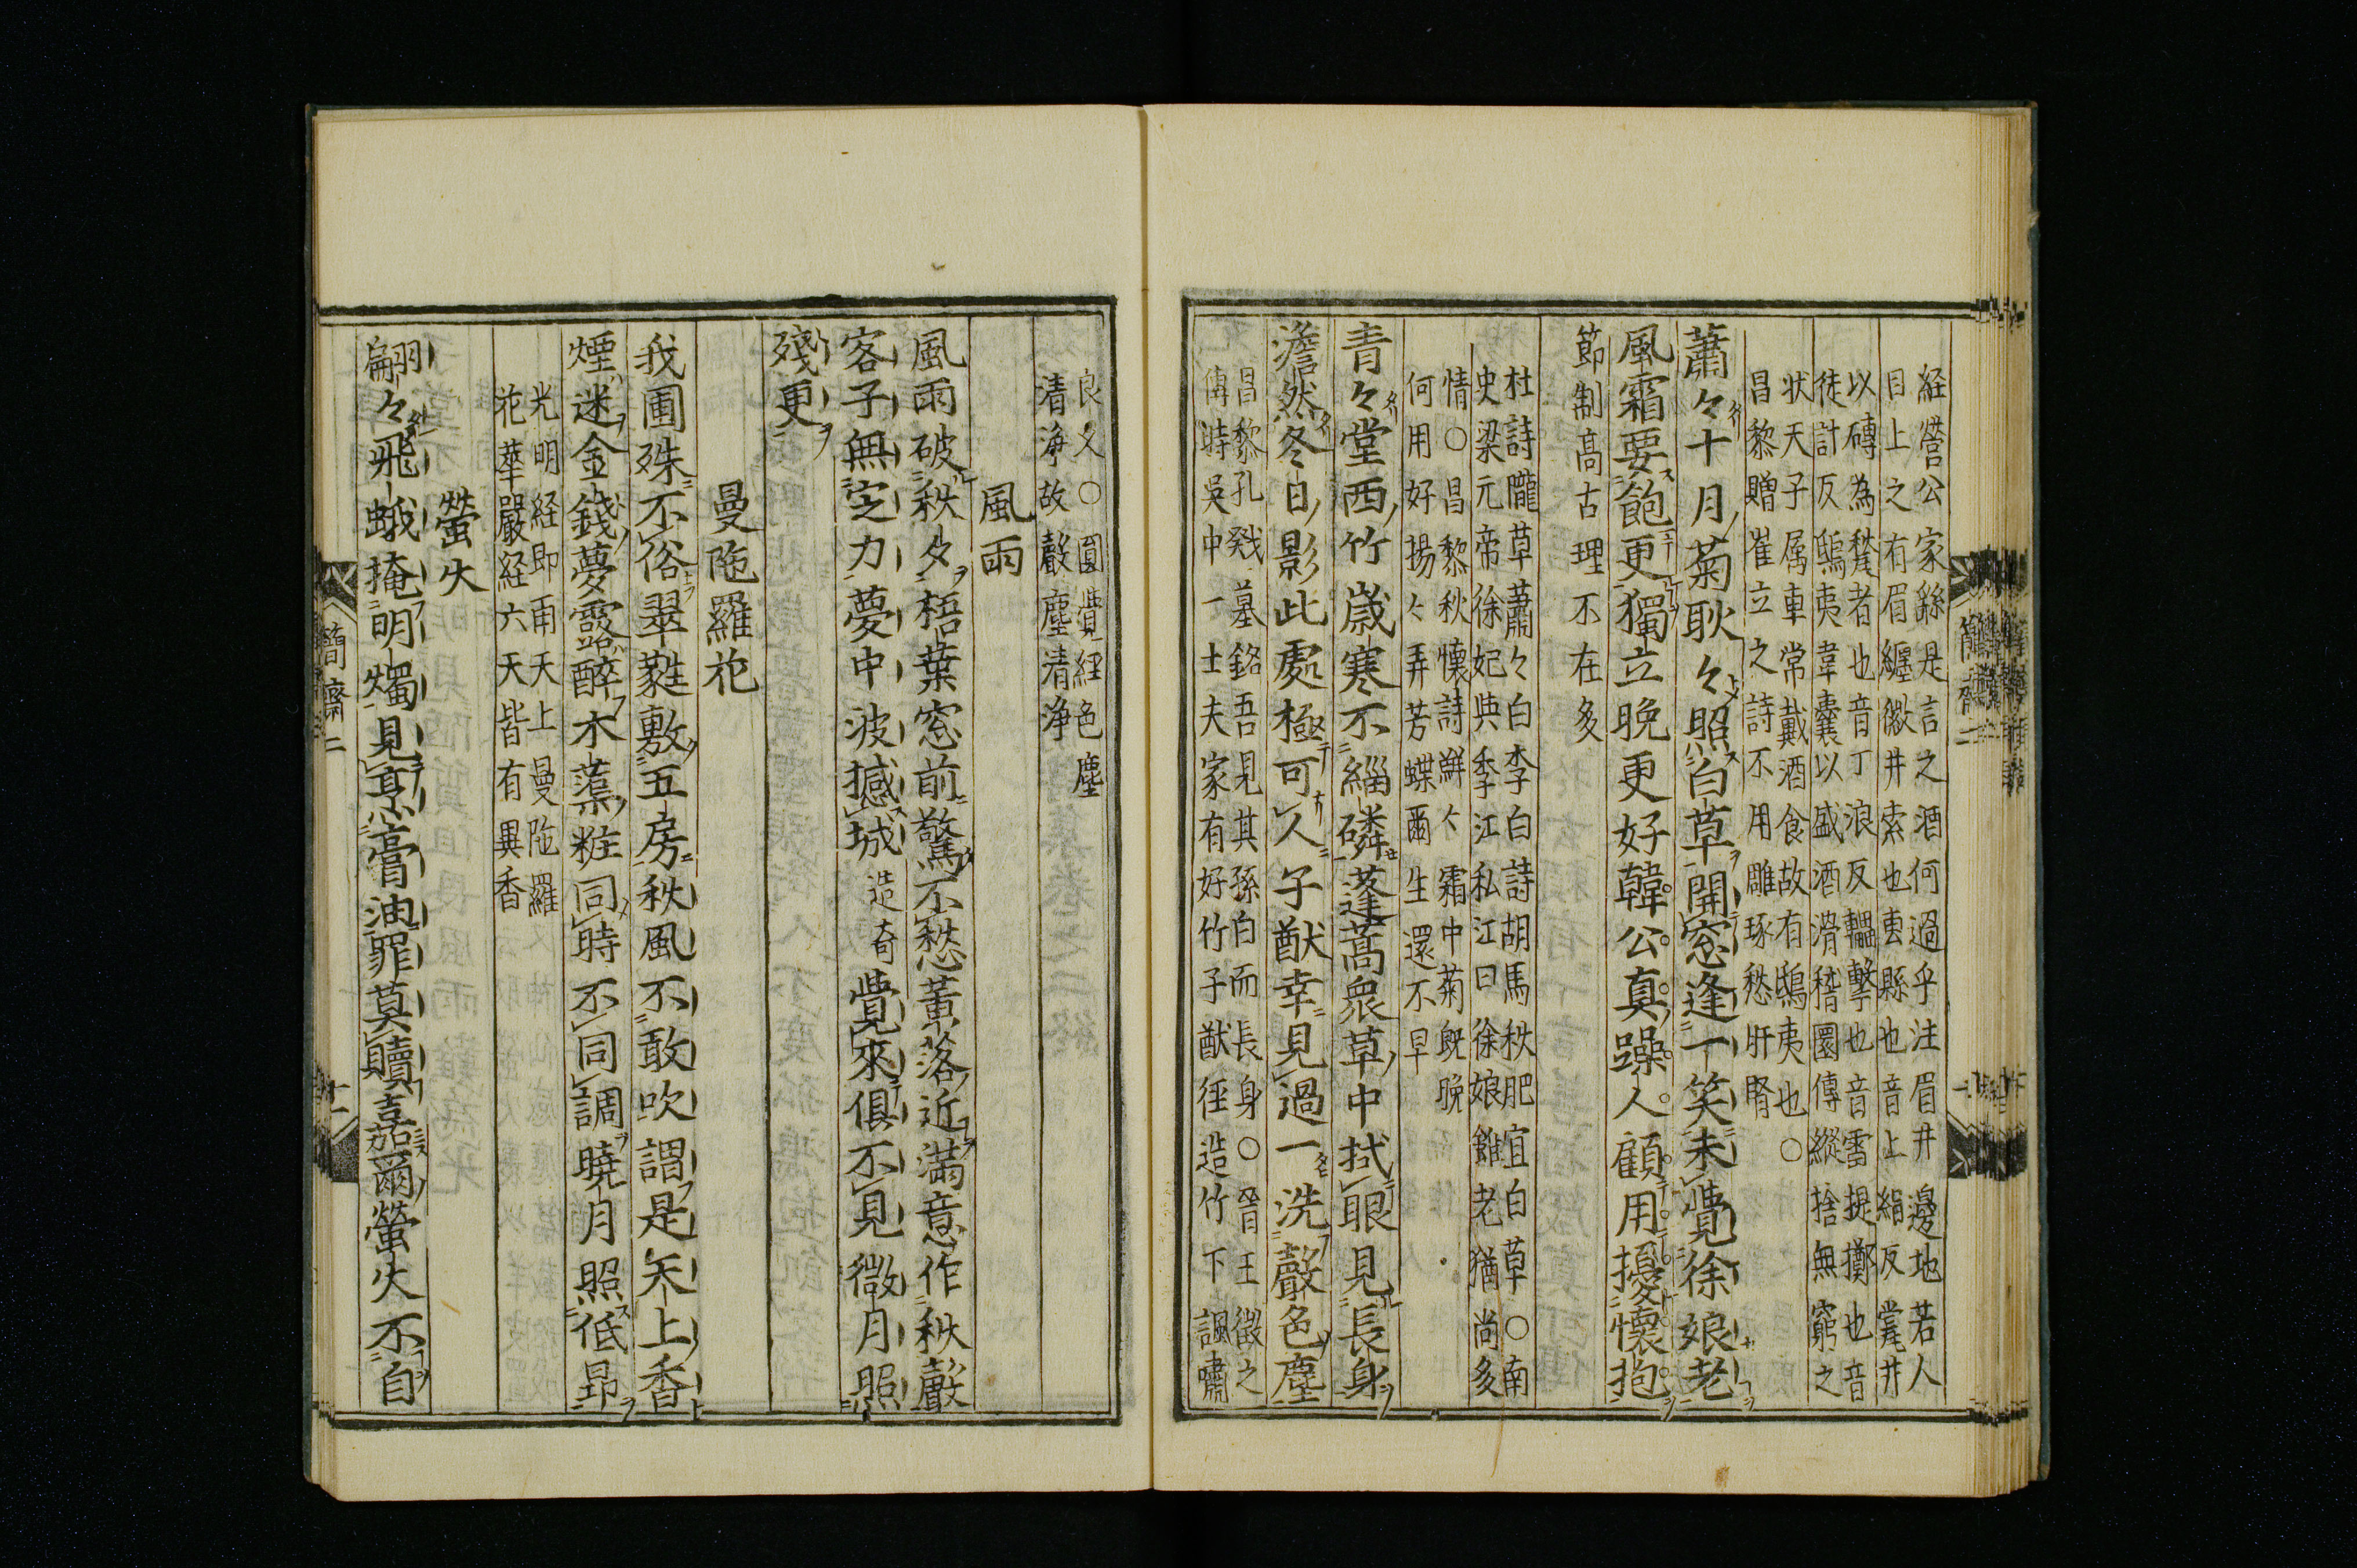 経營公家餘是言之酒何過乎注眉井邊地若人
目上之有眉纒徽井索也叀縣也音上絹反嘗井
以磚為甃者也音丁浪反轠擊也音雷提擲也音
徒計反鴟夷韋囊以盛酒滑稽圜傳縱捨無窮之
狀天子属車常戴酒食故有鴟夷也○
昌黎贈崔立之詩不用雕琢愁肝腎
蕭々十月菊耿々照白草開窓逢一笑未覺徐娘老
風霜要飽更獨立晚更好韓公真躁人顧用擾懷抱
節制高古理不在多
杜詩隴草蕭々白李白詩胡馬秋肥宜白草○南
史梁元帝徐妃與季江私江曰徐娘雖老猶尚多
情○昌黎秋懷詩鮮々霜中菊既晚
何用好揚々弄芳蝶爾生還不早
青々堂西竹歲寒不緇磷蓬蒿衆草中拭眼見長身
澹然冬日影此處極可人子猷幸見過一洗聲色塵
昌黎孔戣墓銘吾見其孫白而長身○晉王徽之
傳時吳中一士夫家有好竹子猷徑造竹下諷嘯
良久○圓覺経色塵
清淨故聲塵清淨
風雨
風雨破秋夕梧葉窓前驚不愁黃落近滿意作秋聲
客子無定力夢中波撼城造奇覺來俱不見微月照
殘更
曼陁羅花
我圃殊不俗翠蕤敷五房秋風不敢吹謂是天上香
煙迷金錢夢露醉木蕖粧同時不同調曉月照低昂
光明経即雨天上曼陁羅
花華嚴経六天皆有異香
螢火
翩々飛蛾掩明燭見烹膏油罪莫贖嘉爾螢火不自
簡齋二
十二